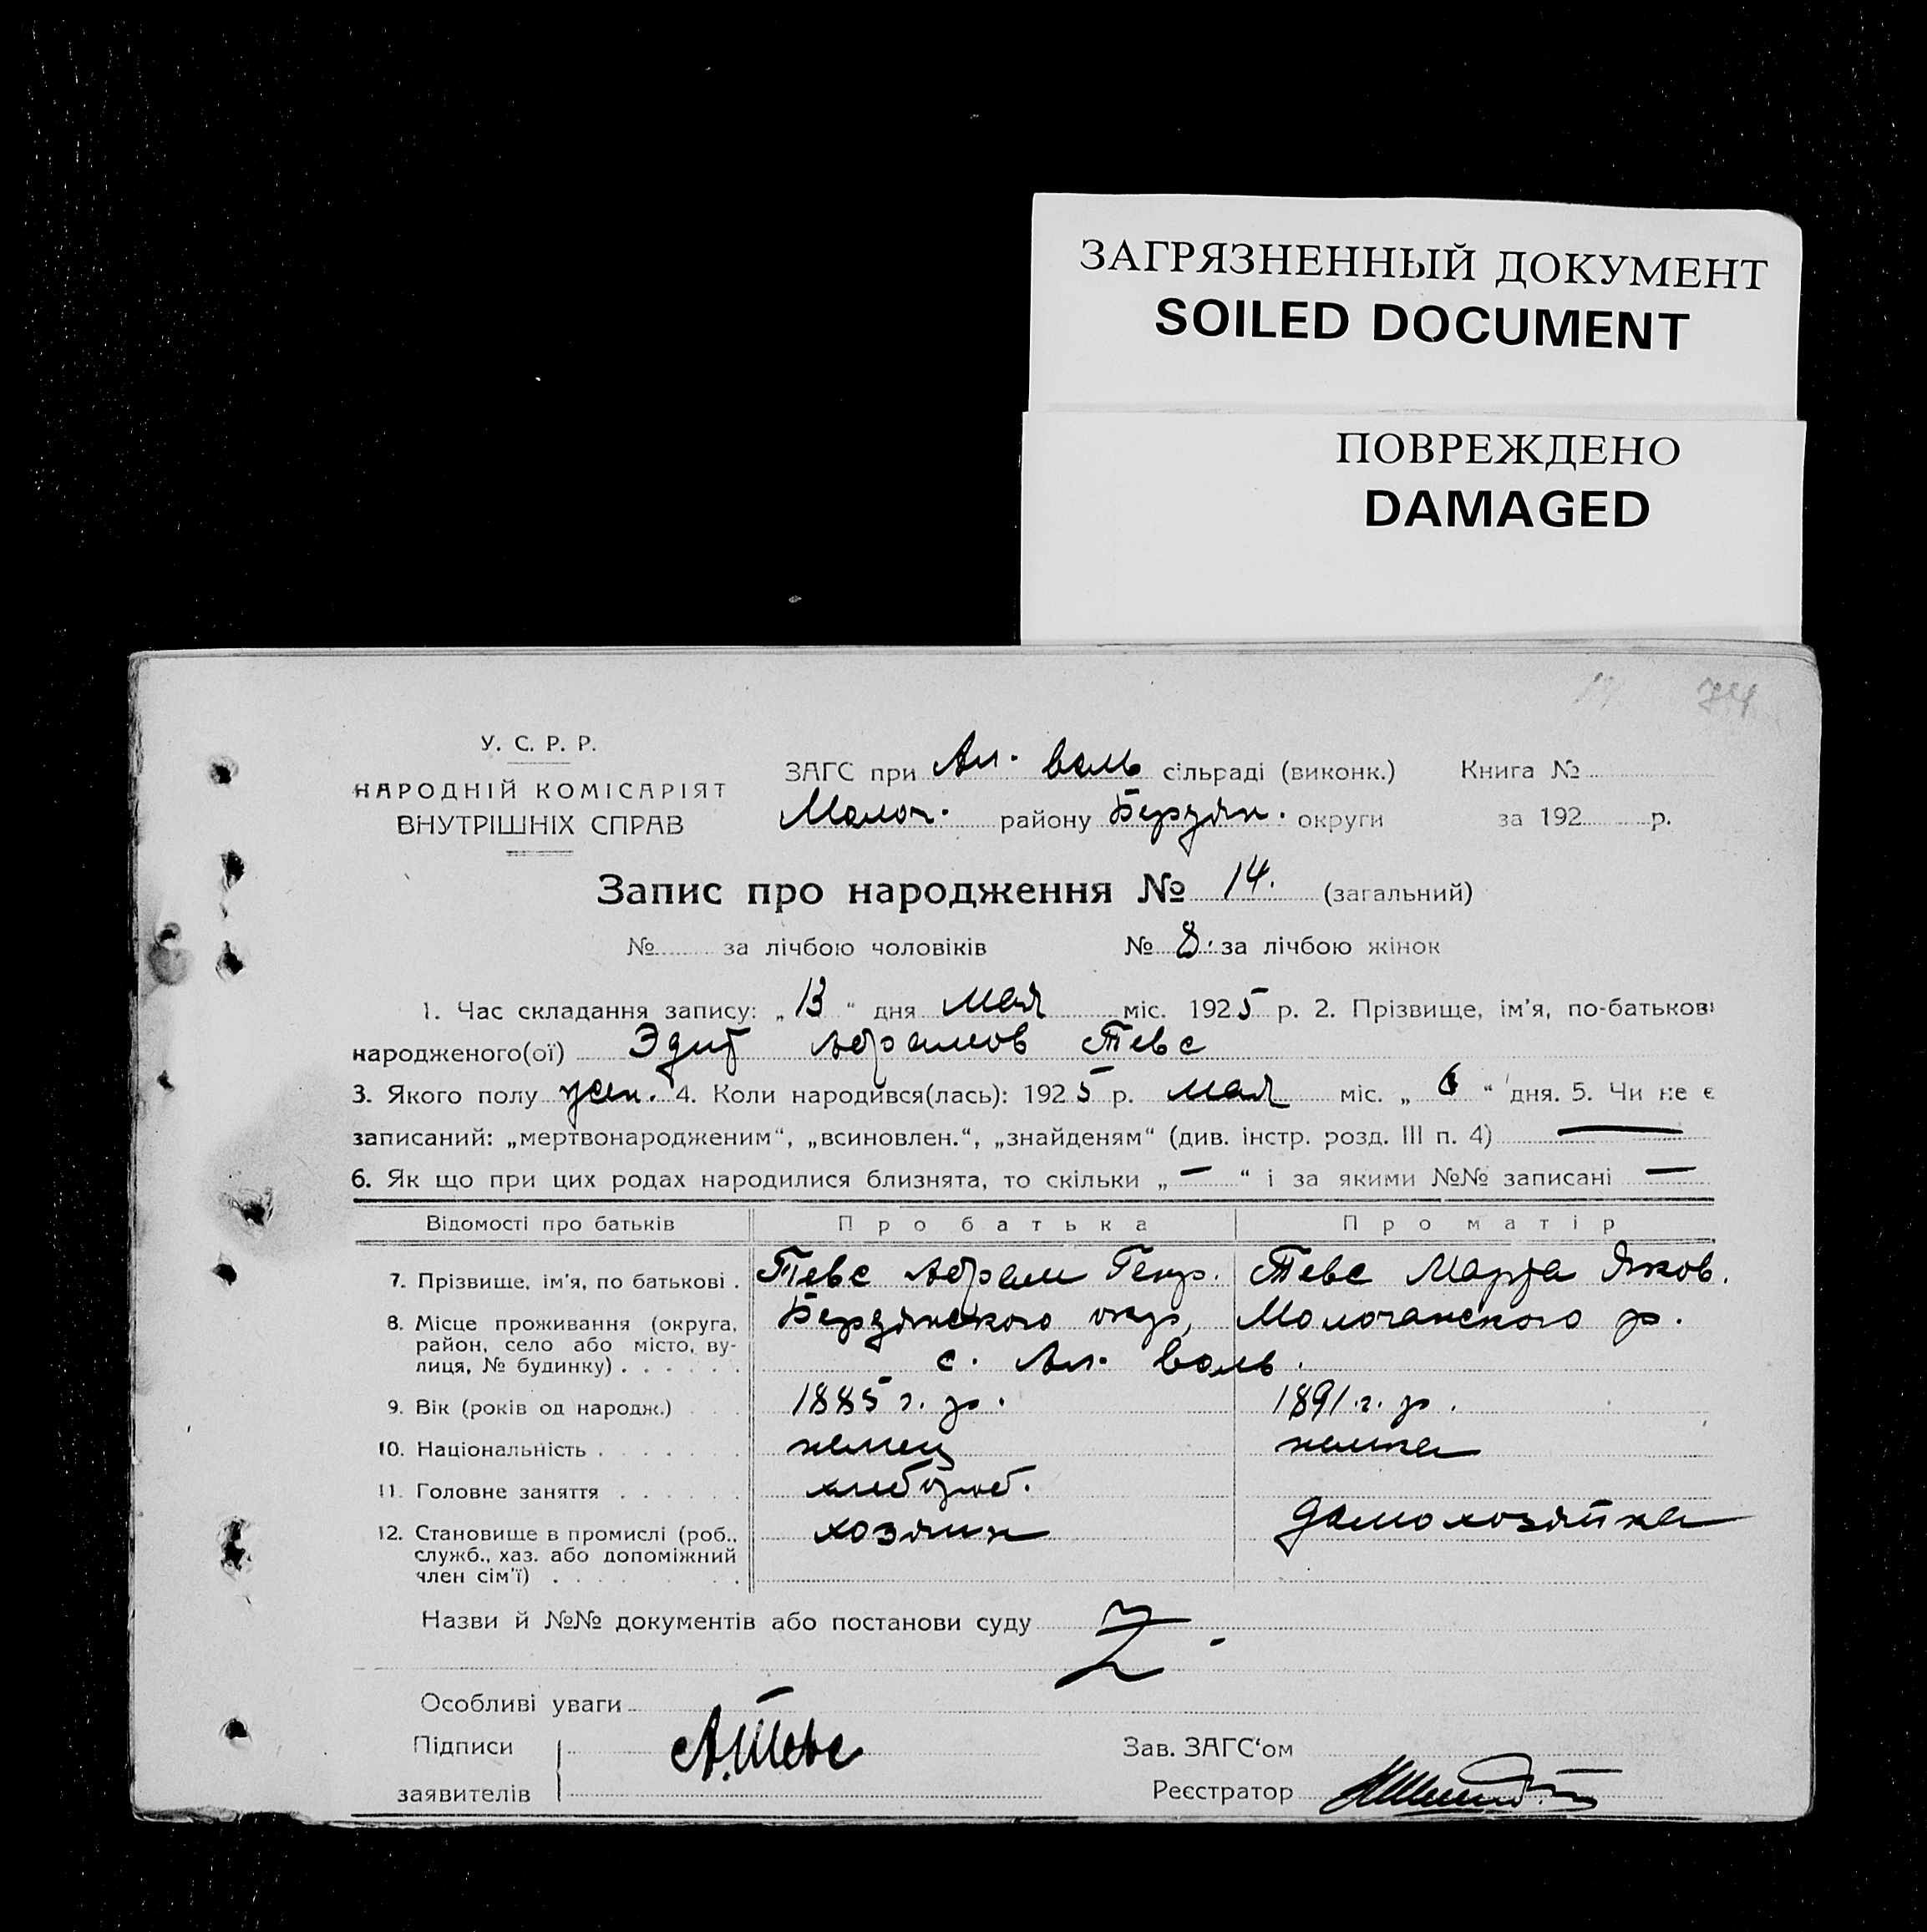 ЗАГРЯЗНЕННЫЙ ДОКУМЕНТ
SOILED DOCUMENT
ПОВРЕЖДЕНО
DAMAGED
У. С. Р. Р.
НАРОДНІЙ КОМІСАРІЯТ
ВНУТРІШНІХ СПРАВ
ЗАГС при Ал. валь сільраді (виконк.) Книга №
Молоч. району Бердян. округи за 192 р.
Запис про народження № 14. (загальний)
№ за лічбою чоловіків № 8. за лічбою жінок
1. Час складання запису: „13“ дня мая міс. 1925 р. 2. Прізвище, ім'я, по-батькові
народженого(ої) Эдит Абрамов Тевс
3. Якого полу жен. 4. Коли народився(лась): 1925 р. мая міс. „6“ дня. 5. Чи не є
записаний: „мертвонародженим“, „всиновлен.“, „знайденям“ (див. інстр. розд. III п. 4) —
6. Як що при цих родах народилися близнята, то скільки „—“ і за якими №№ записані —
Відомості про батьків Про батька Про матір
7. Прізвище, ім'я, по батькові . Тевс Абрам Генр. Тевс Марта Яков.
8. Місце проживання (округа, Бердянского окр, Молочанского р.
район, село або місто, ву-
лиця, № будинку) . . . . . . с. Ал. валь.
9. Вік (років од народж.) . . . 1885 г. р. 1891 г. р.
10. Національність . . . . . . . немец немка
11. Головне заняття . . . . . . хлебороб.
12. Становище в промислі (роб., хозяин домохозяйка
служб., хаз. або допоміжний
член сім'ї) . . . . . . . .
Назви й №№ документів або постанови суду
Особливі уваги —
Підписи А.Тевс Зав. ЗАГС'ом
заявителів Реєстратор